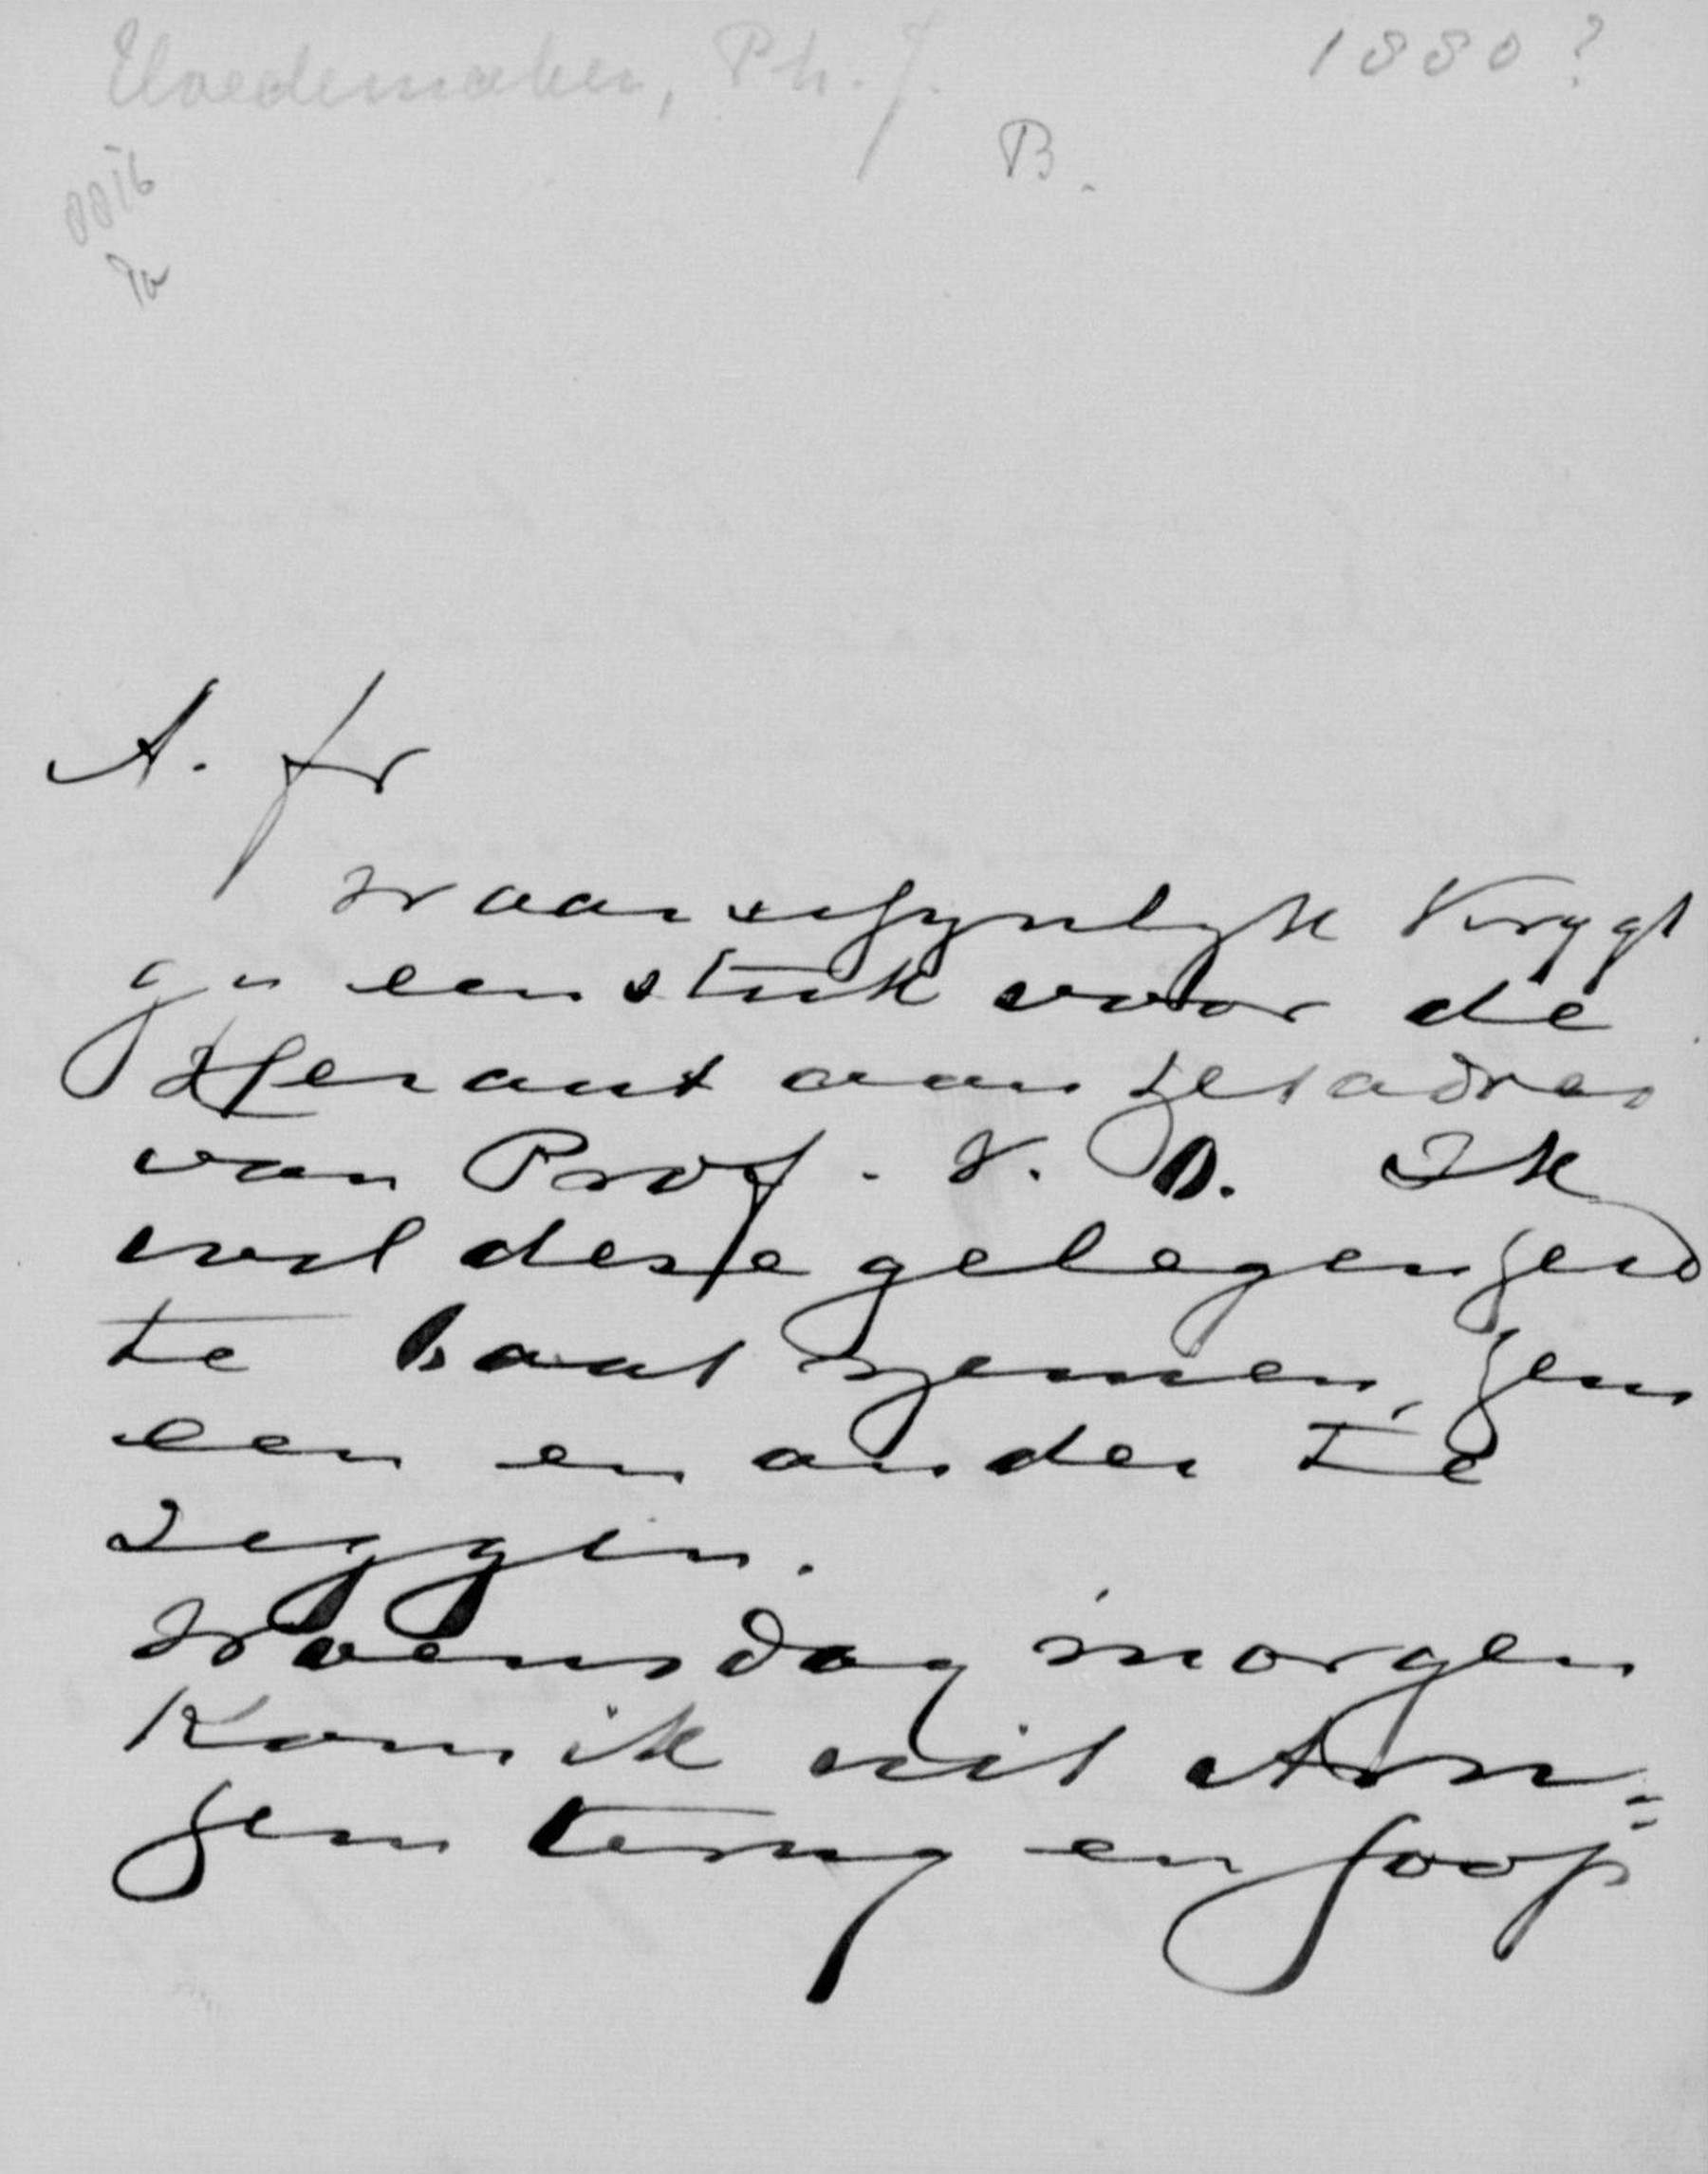 Hoedemaker, Ph. J.
1880?
B.
A. fr
Waarschynlyk krygt
gy een stuk voor de
Heraut aan het adres
van Prof. V. D. Ik
wil deze gelegenheid
te baat nemen, hem
een en ander te
zeggen.
Woensdag morgen
Kom ik uit Arn=
hem terug en hoop